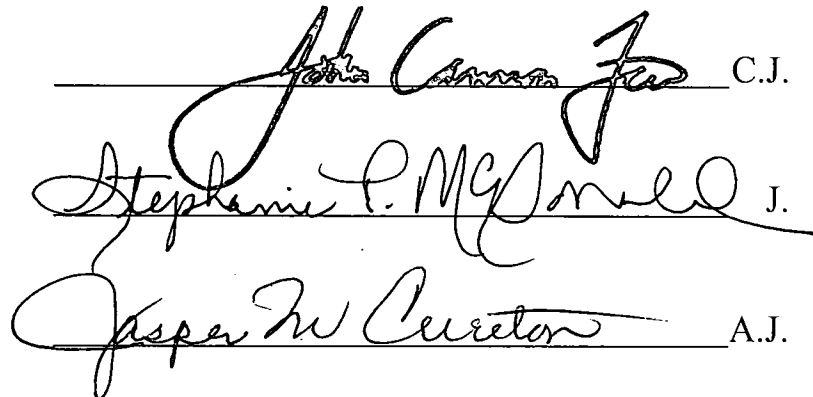 John Cannon Few C.J.
Stephanie P. McDonald J.
Jasper M Cureton A.J.